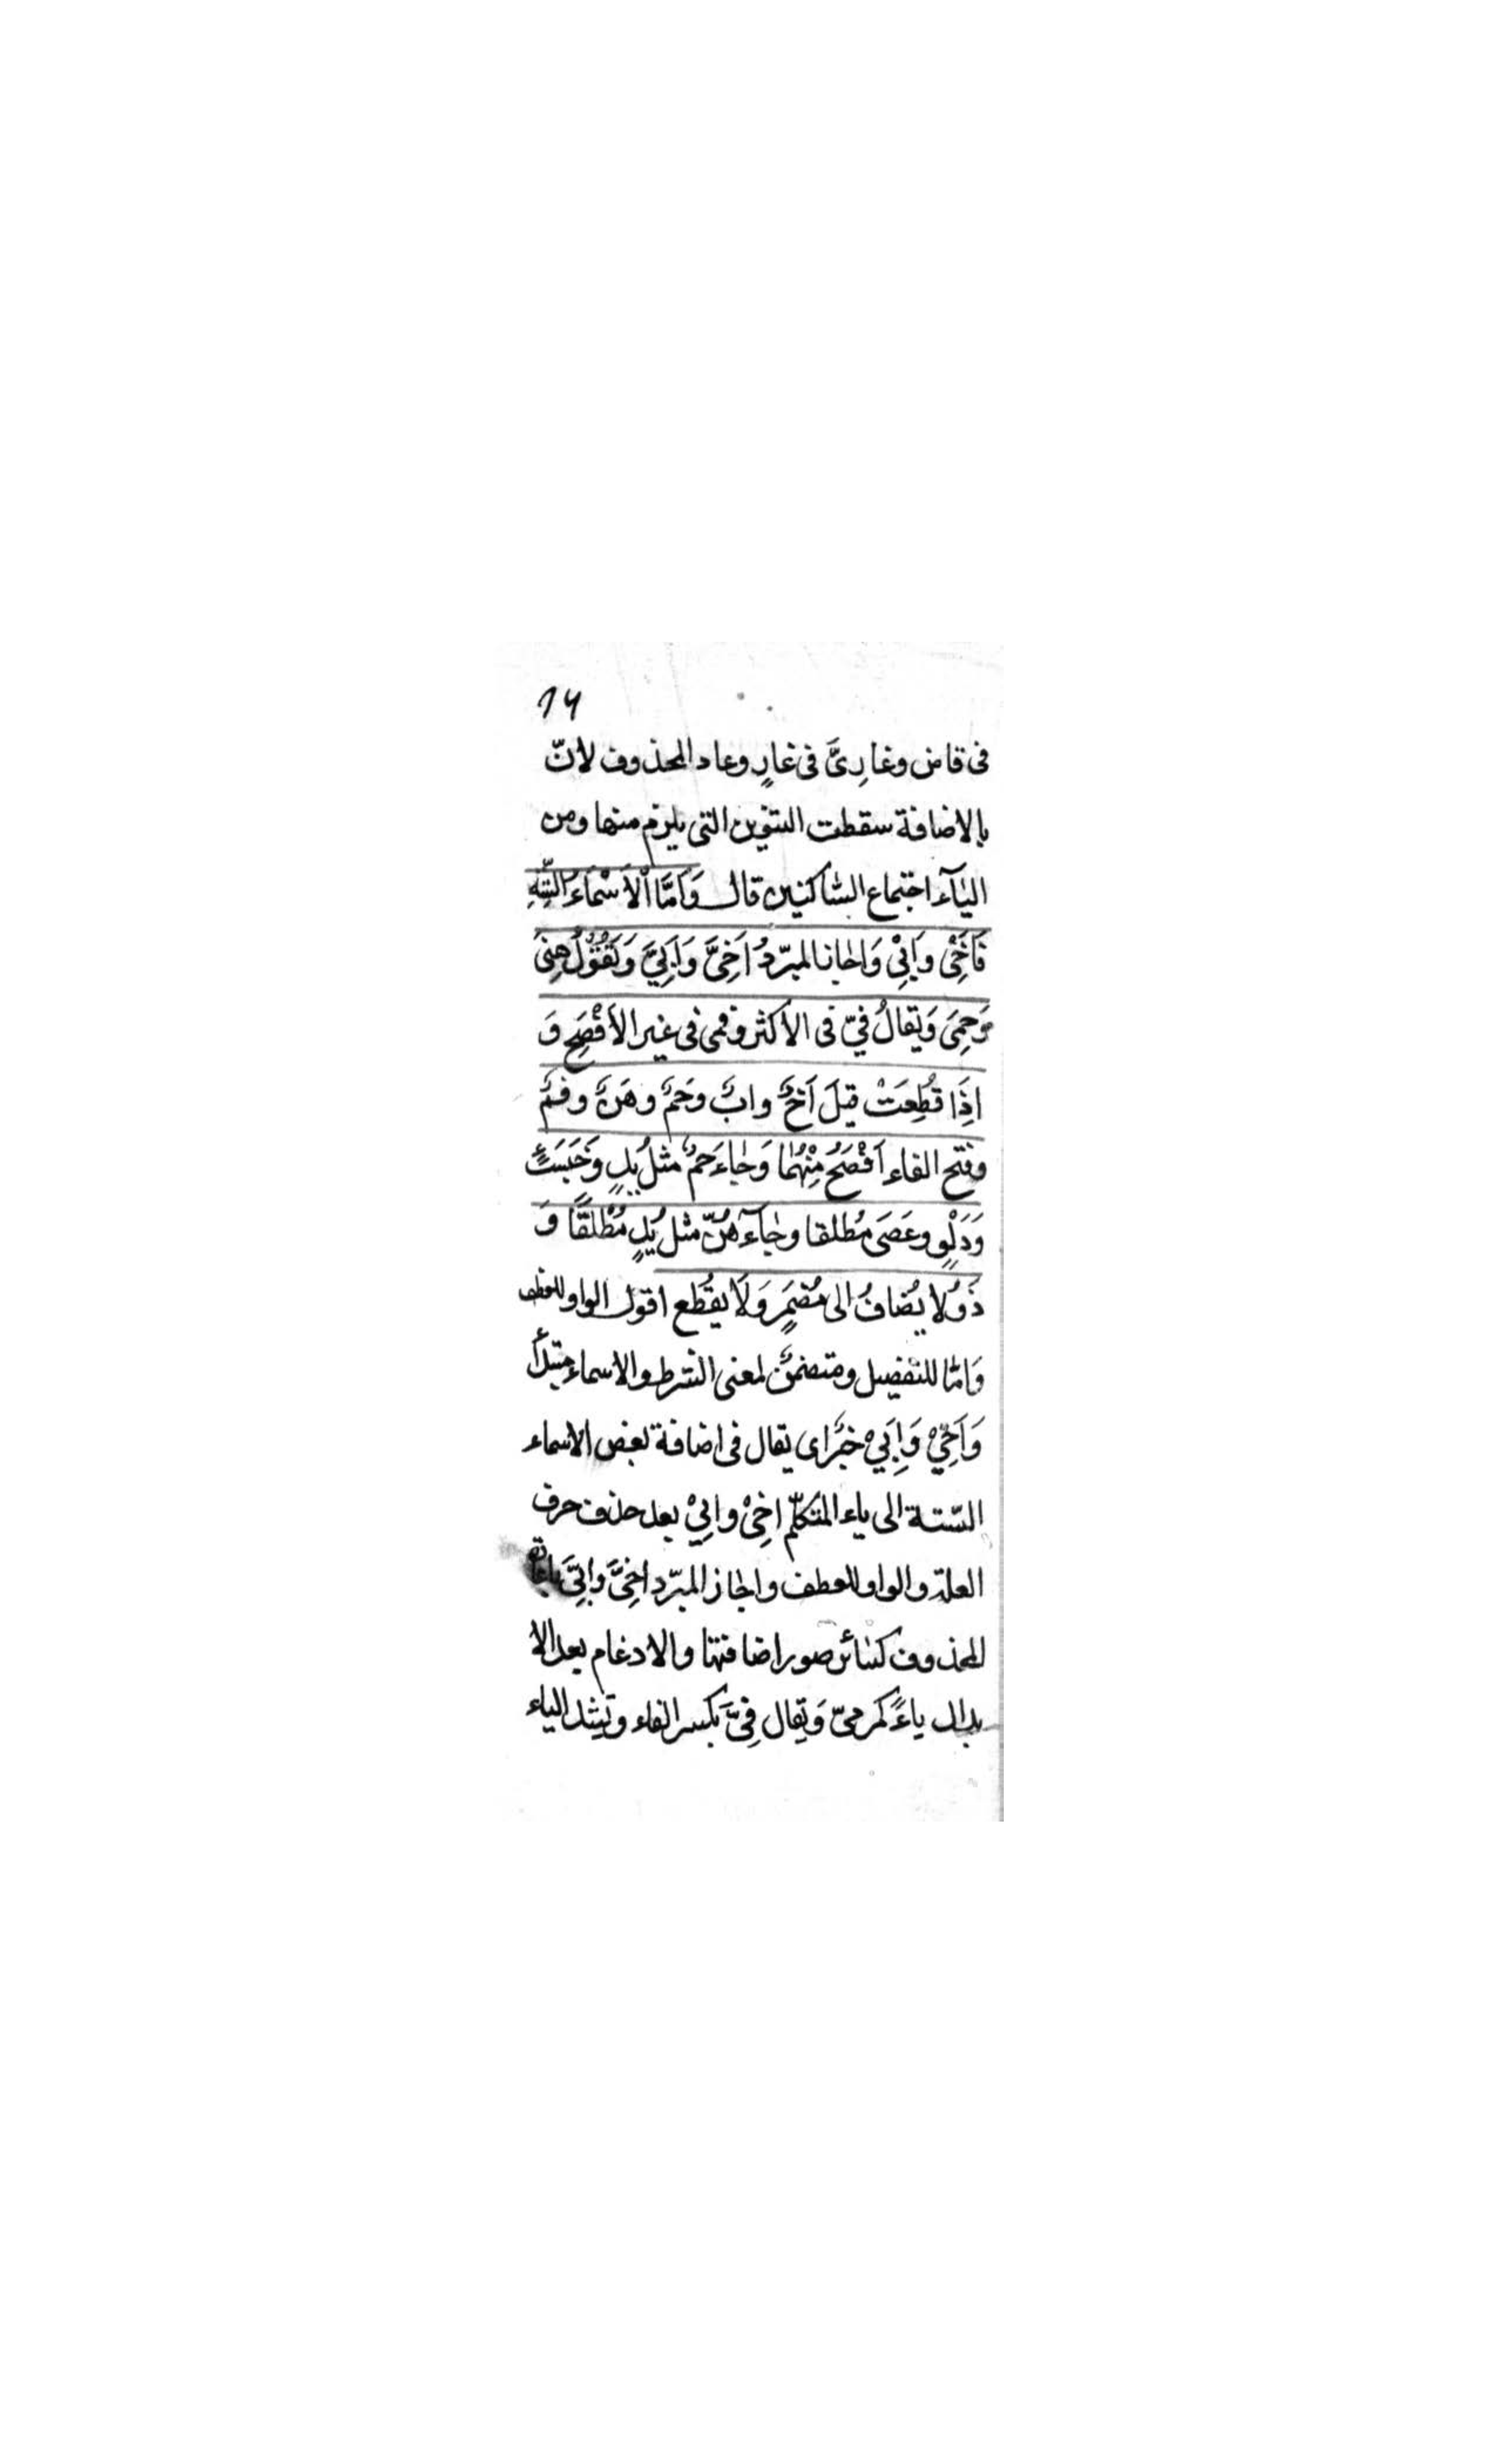 ١٦
فى قاض وغارِىَّ فى غارٍ وعاد المحذوف لانّ
بالاضافة سقطت التنوين التى يلزم منها ومن
اليآء اجتماع السّاكنين قال وَاَمَّا الْاَسْمَاءُ السِّتَّةِ
فَاَخِىْ واَبِىْ وَاجازا المبرّدُ اَخِىَّ وَاَبِىَّ وَتَقُوْلُ هِنَى
وَحِمَى وَيُقالُ فىّ فى الاَكثر وفمى فى غير الاَفْصَحِ وَ
اِذَا قُطِعَتْ قِيلَ اَخٌ وابٌ وحَمٌ وهَنٌ وفمٌ
وفتح الفاء اَفْصَحُ مِنْهُمَا وَجاءَ حَمٌ مثلُ يَدٍ وَخَبَسَبٍٔ
وَدَلْوٍ وعَصَى مُطلقا وجاءَ هنٌ مثل يَدٍ مُطْلَقًا وَ
ذُو لا يُضافُ الى مُضمَرٍ وَلَا يقُطَع اقول الواو للعطف
وَامّا للتفضيل ومتضمنٌ لمعنى الشرط والاسماء مبتدأ
وَاَخِىْ وَاَبِىْ خبرٌ اى يقال فى اضافة بعض الاسماء
السّتة الى ياء المتكلّم اخِىْ وابِىْ بعد حذف حرف
العلة والواو للعطف واجاز المبرّد اخِىَّ وابِىَّ باعادة
المحذوف كسائر صور اضافتها والادغام بعد الا
بدال ياءً كمرمىّ وَيقال فِىَّ بكسر الفاء وتشد الياء